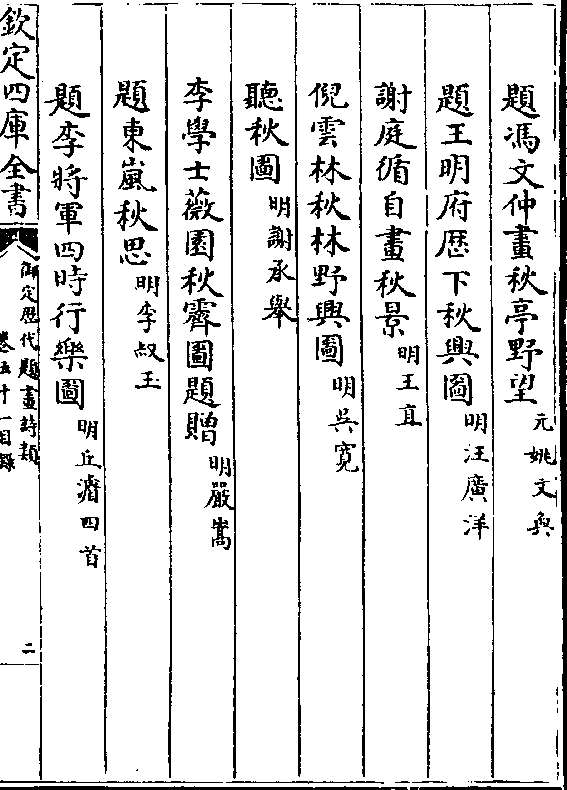 題馮文仲畫秋亭野望 元姚文奐
題王明府歴下秋興圖 明汪廣洋
謝庭循自畫秋景 明王直
倪雲林秋林野興圖 明吳寛
聽秋圖 明謝承舉
李學士薇園秋霽圖題贈 明嚴嵩
題東嵐秋思 明李叔玉
題李將軍四時行樂圖 明丘濬四首
欽定四庫全書
御定歴代題畫詩類
卷五十一目錄
二